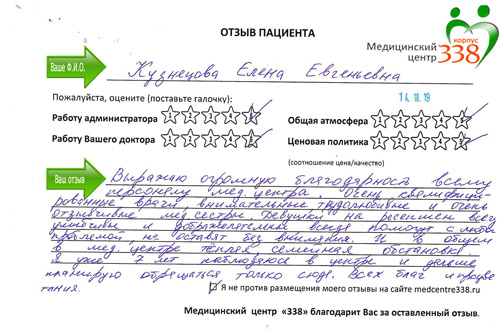 ОТЗЫВ ПАЦИЕНТА
Медицинский центр корпус 338
Ваше Ф.И.О.
Кузнецова Елена Евгеньевна
14.10.19
Пожалуйста, оцените (поставьте галочку):
Работу администратора 1 2 3 4 5
Общая атмосфера 1 2 3 4 5
Работу Вашего доктора 1 2 3 4 5
Ценовая политика 1 2 3 4 5
(соотношение цена/качество)
Ваш отзыв
Выражаю огромную благодарность всему
персоналу мед. центра. Очень квалифици-
рованные врачи внимательные трудолюбивые и очень
отзывчивые мед. сестры. Девушки на ресепшен всегда
учтивы и доброжелательны всегда помогут с любой
проблемой не оставят без внимания. И в общем
в мед. центре теплая семейная обстановка
Я уже 7 лет наблюдаюсь в центре и дальше
планирую обращаться только сюда. Всех благ и процве
тания.
Я не против размещения моего отзыва на сайте medcentre338.ru
Медицинский центр «338» благодарит Вас за оставленный отзыв.